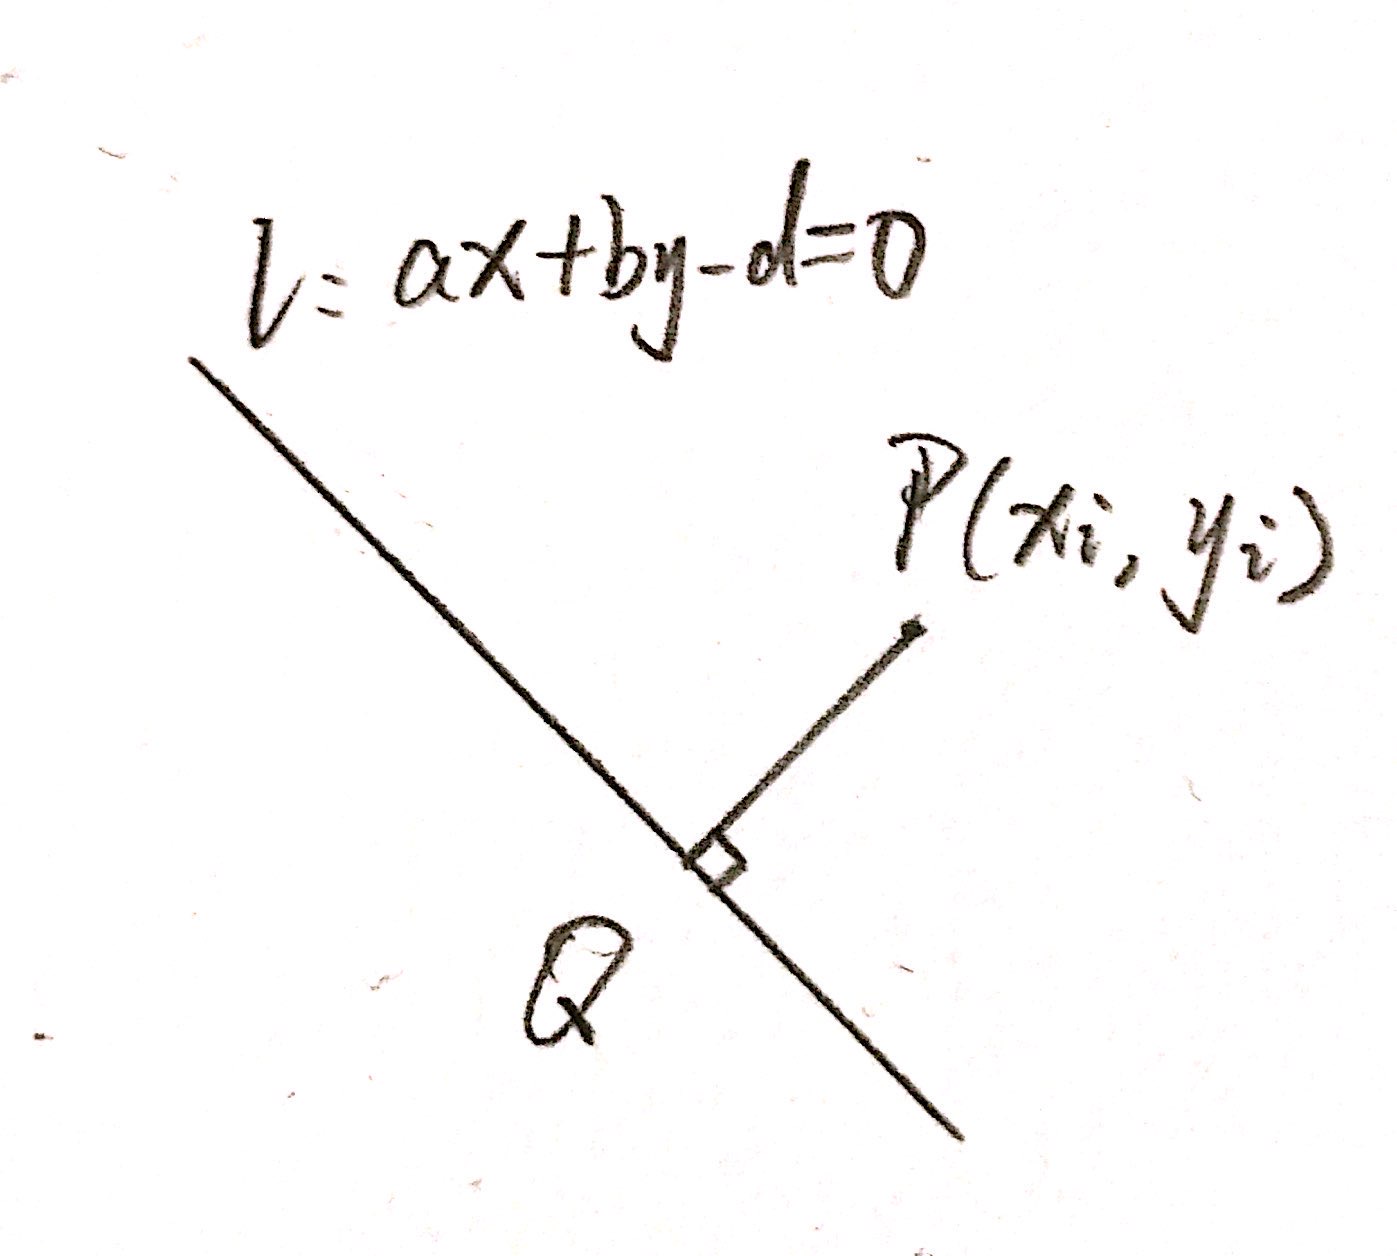 l: ax+by-d=0
P(xi, yi)
Q